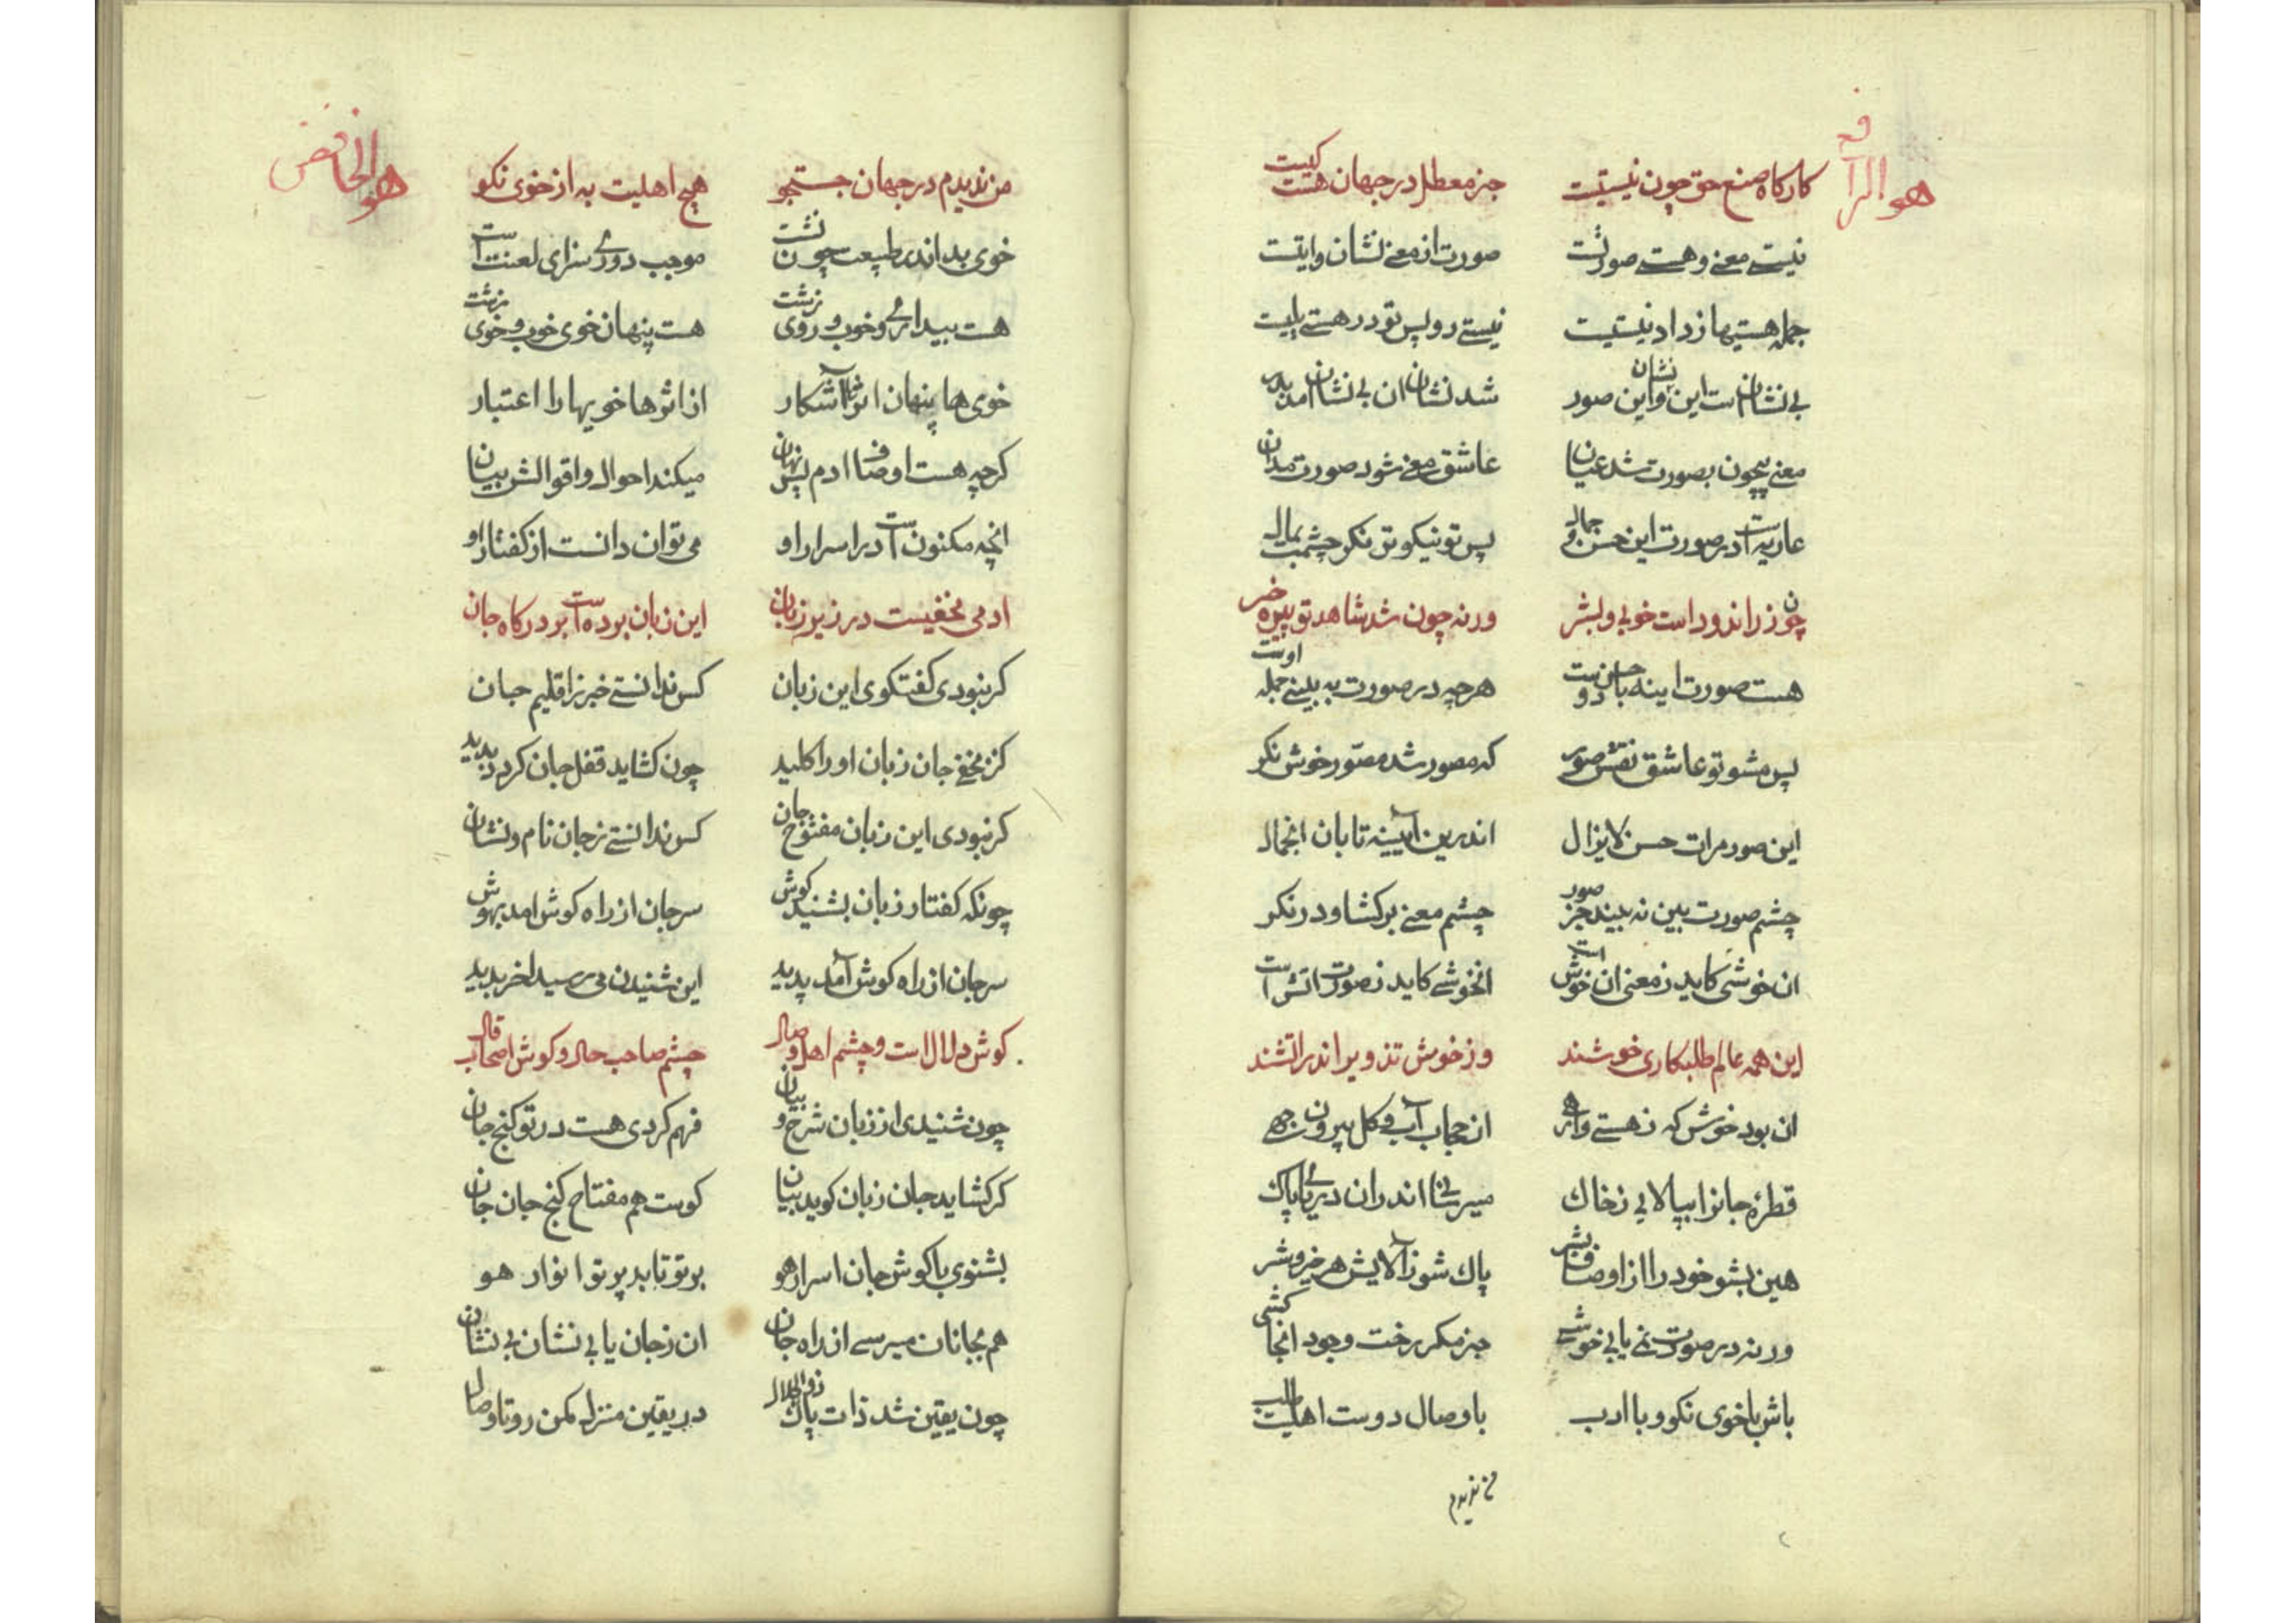 هو الرافع
کارکاه صنع حق چون نیستیست جز معطل در جهان هست کیست
نیستے معنے و هستے صورتست صورت از معنے نشان وایتست
جمله هستیها زداد نیستیست نیستے رو پس تو در هستے
بی نشان است این و این نشان صور شد نشان ان بی نشان امد بدر
معنے بیچون بصورت شد عیان عاشق معنے شو د صورت مدان
عاریه است در صورت این حسن و جمال پس تو نیکوتر نکر چشمت بمال
چون زر اندود است خوبی و بشر ورنه چون شد شاهد تو پیره خر
هست صورت اینه با حسن دوست هرچه در صورت به بینے جمله اوست
پس مشو تو عاشق نقش صور که مصور شد مصوّر خوش نکر
این صور مرات حسن لایزال اندرین آیینه تابان انجمال
چشم صورت بین نه بیند جز صور چشم معنے برکشا و در نکر
ان خوشی کاید ز معنی ان خوش است انخوشے کاید ز صورت اتش است
این همه عالم طلبکاری خوشند وز خوش تزویر اندر اتشند
ان بود خوش که ز هستے وارهے از حجاب آب و کل بیرون جهے
قطرهٔ جانرا بپالایی ز خاك میرسانی اندران دریای پاك
هین بشو خود را از اوصاف بشر پاك شو ز آلایش هر خیر و شر
ورنه در صورت نمے یابی خوشے جز مکر رخت وجود انجا کشی
باش با خوی نکو و با ادب با وصال دوست اهلیت طلب
من ندیدم
هو الخافض
من ندیدم در جهان جستجو هیچ اهلیت به از خوی نکو
خوی بد اندر طبیعت چون نشت موجب دوری سزای لعنت است
هست بیدا و خوب و روی زشت هست پنهان خوی خوب و خوی زشت
خوی ها پنهان اثرها آشکار از اثرها خویها را اعتبار
کرچه هست اوصاف ادم بس نهان میکند احوال و اقوالش بیان
انچه مکنون است در اسرار او می توان دانست از کفتار او
ادمی مخفیست در زیر زبان این زبان بوده است بر درکاه جان
کر نبودی کفتکوی این زبان کس ندانستے خبر ز اقلیم جان
کنز مخفی جان زبان او را کلید چون کشاید قفل جان کردد پدید
کر نبودی این زبان مفتوح جان کس ندانستے ز جان نام و نشان
چونکه کفتار زبان بشنید کوش سر جان از راه کوش امد بهوش
سر جان از راه کوش آمد پدید این شنیدن می رسید اخر بدید
کوش دلال است و چشم اهل وصال چشم صاحب حال و کوش اصحاب قال
چون شنیدی از زبان شرح و بیان فهم کردی هست در تو کنج جان
کر کشاید جان زبان کوید بیان کوست هم مفتاح کنج جان جان
بشنوی با کوش جان اسرار هو بر تو تابد پرتو انوار هو
هم بجانان میرسے از راه جان ان ز جان یابی نشان بی نشان
چون یقین شد ذات پاك ذوالجلال در یقین منزل مکن رو تا وصال